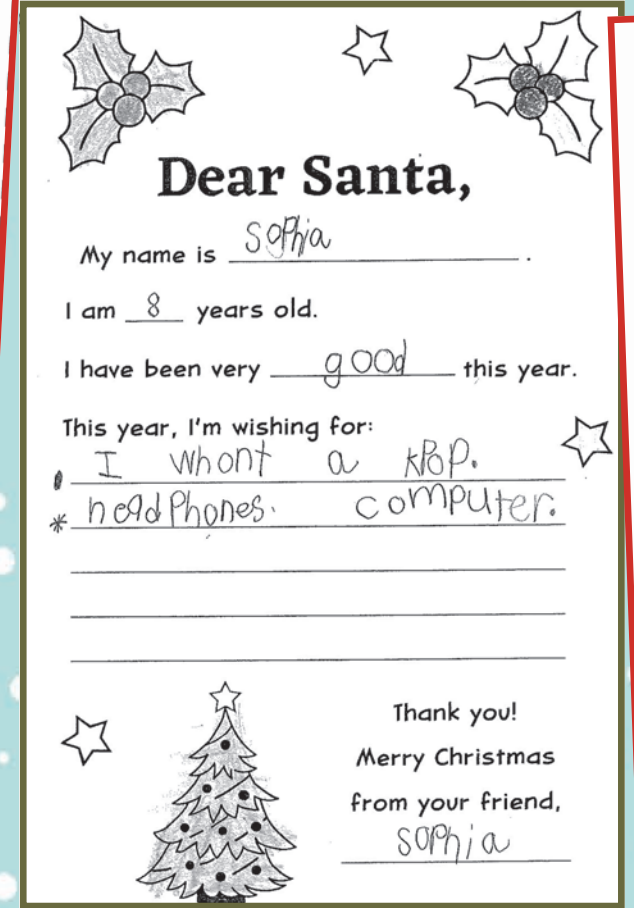 Dear Santa,
My name is Sophia.
I am 8 years old.
I have been very good this year.
This year, I'm wishing for:
I whont a kPoP.
* headPhones. computer.
Thank you!
Merry Christmas
from your friend,
Sophia